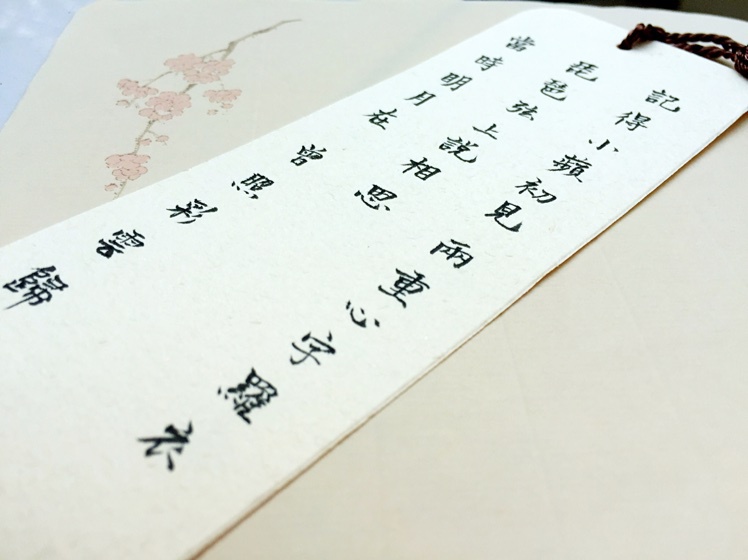 記得小蘋初見兩重心字羅衣
琵琶弦上說相思
當時明月在曾照彩雲歸